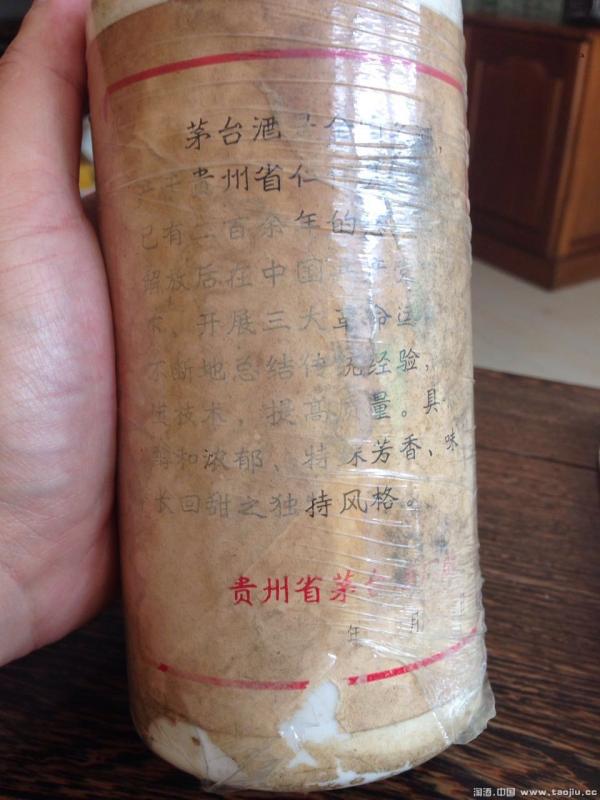 茅台酒
贵州省仁
已有二百余年的
解放后在中国共产党
开展三大革命运
不断地总结传统经验,
技术,提高质量。具
醇和浓郁、特殊芳香、味
长回甜之独特风格。
贵州省茅台
年 月
淘酒.中国 www.taojiu.cc